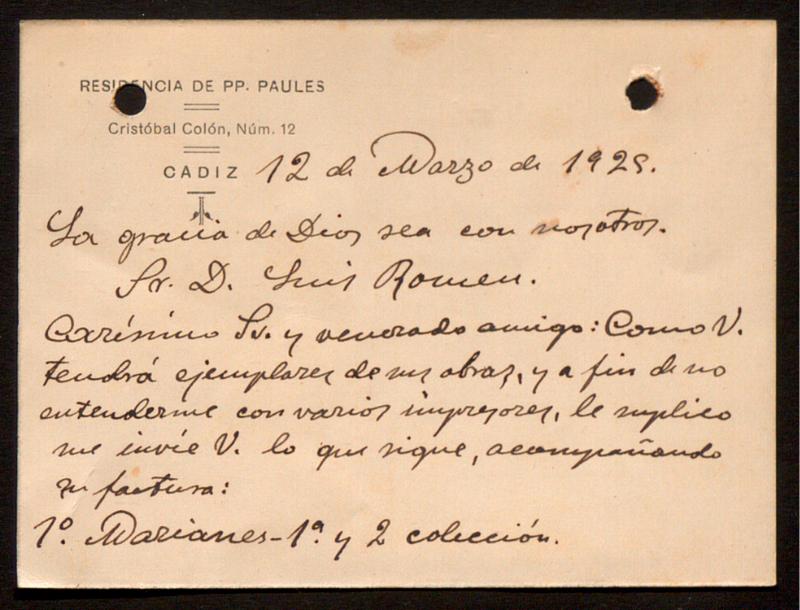 RESIDENCIA DE PP. PAULES
Cristóbal Colón, Núm. 12
CADIZ 12 de Marzo de 1925.
La gracia de Dios sea con nosotros.
Sr. D. Luis Romeu.
Carísimo Sr. y venerado amigo: Como V.
tendrá ejemplares de mis obras, y a fin de no
entenderme con varios impresores, le suplico
me invíe V. lo que sigue, acompañando
su factura:
1º. Marianes - 1ª. y 2 colección.